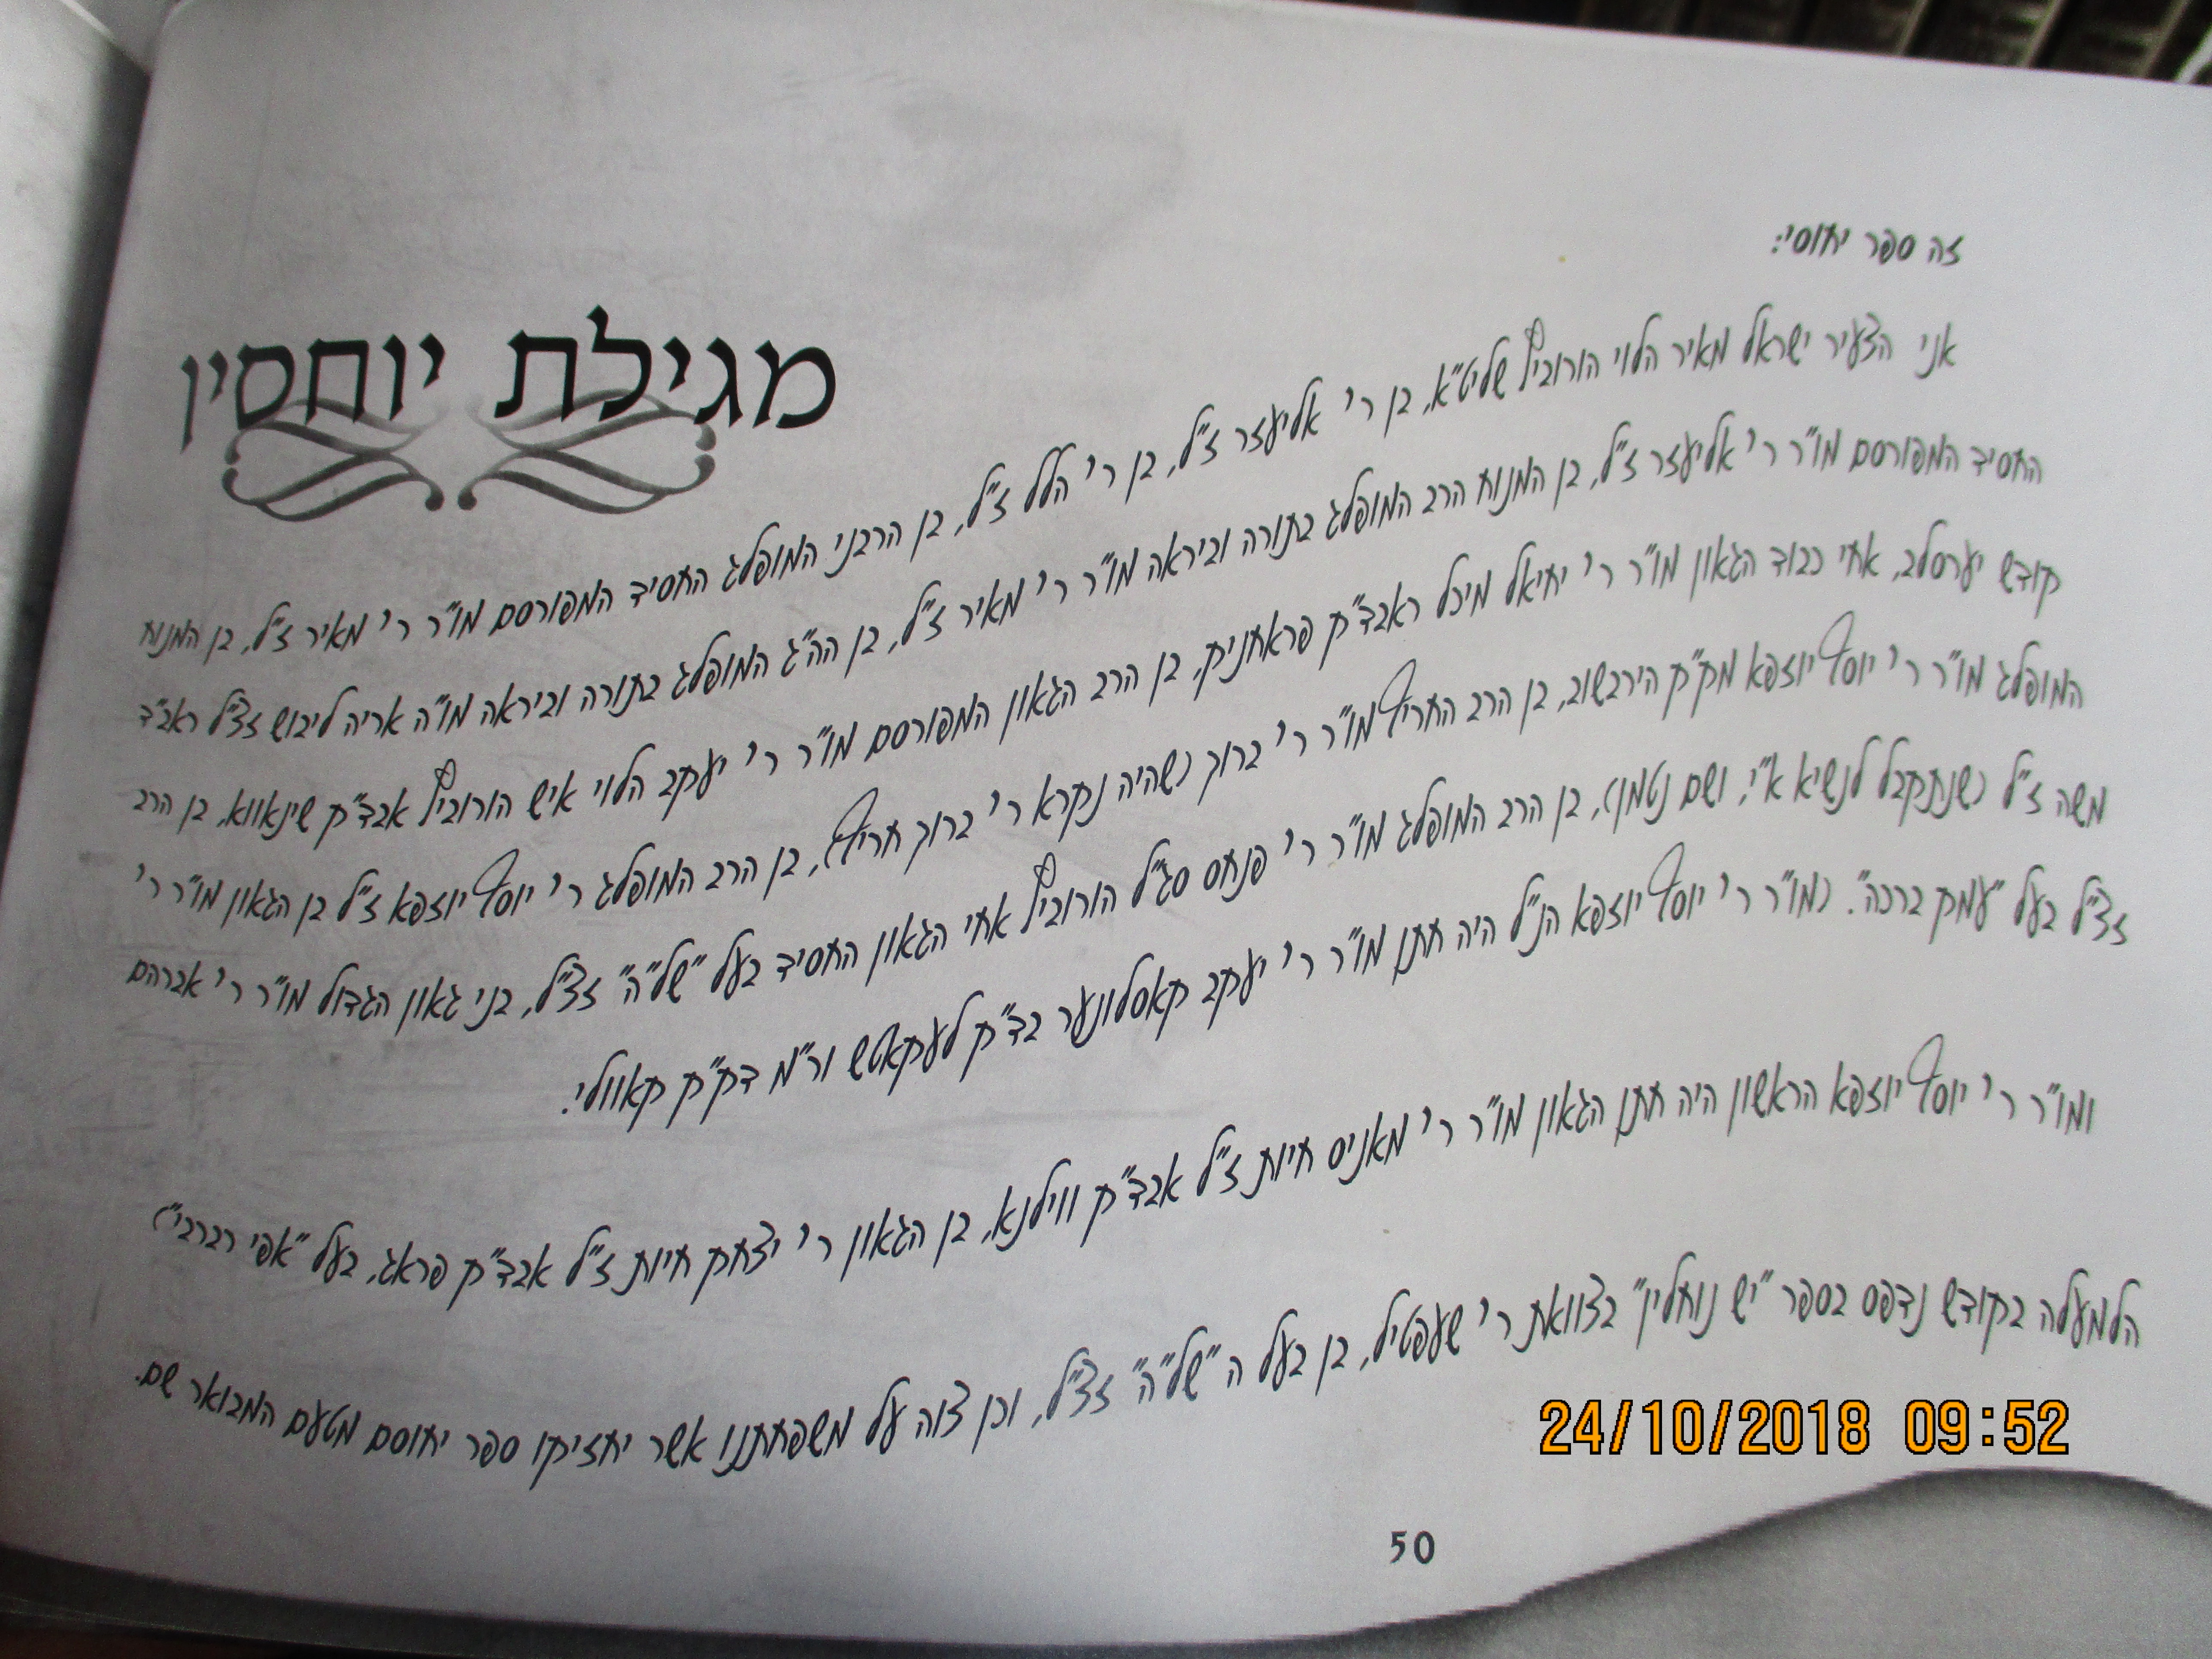 זה ספר יחוסי:
מגילת יוחסין
אני הצעיר ישראל מאיר הלוי הורוביץ שליט"א, בן ר' אליעזר ז"ל, בן ר' הלל ז"ל, בן הרבני המופלג החסיד המפורסם מו"ר ר' מאיר ז"ל, בן המנוח
החסיד המפורסם מו"ר ר' אליעזר ז"ל, בן המנוח הרב המופלג בתורה וביראה מו"ר ר' מאיר ז"ל, בן הה"ג המופלג בתורה וביראה מו"ה אריה ליבוש זצ"ל ראב"ד
קודש יערסלב, אחי כבוד הגאון מו"ר ר' יחיאל מיכל ראבד"ק פראחניק, בן הרב הגאון המפורסם מו"ר ר' יעקב הלוי איש הורוביץ אבד"ק שינאווא, בן הרב
המופלג מו"ר ר' יוסף יוזפא מק"ק הירבשוב, בן הרב החריף מו"ר ר' ברוך (שהיה נקרא ר' ברוך חריף), בן הרב המופלג ר' יוסף יוזפא ז"ל בן הגאון מו"ר ר'
משה ז"ל (שנתקבל לנשיא א"י, ושם נטמן), בן הרב המופלג מו"ר ר' פנחס סג"ל הורוביץ אחי הגאון החסיד בעל "של"ה" זצ"ל, בני גאון הגדול מו"ר ר' אברהם
זצ"ל בעל "עמק ברכה". (מו"ר ר' יוסף יוזפא הנ"ל היה חתן מו"ר ר' יעקב קאסלונער בד"ק לעקאטש ור"מ דק"ק קאוולי.
ומו"ר ר' יוסף יוזפא הראשון היה חתן הגאון מו"ר ר' מאניס חיות ז"ל אבד"ק ווילנא, בן הגאון ר' יצחק חיות ז"ל אבד"ק פראג, בעל "אפי רברבי")
הלמעלה בקודש נדפס בספר "יש נוחלין" בצוואת ר' שעפטיל, בן בעל ה "של"ה" זצ"ל, וכן צוה על משפחתנו אשר יחזיקו ספר יחוסם מטעם המבואר שם.
24/10/2018 09:52
50